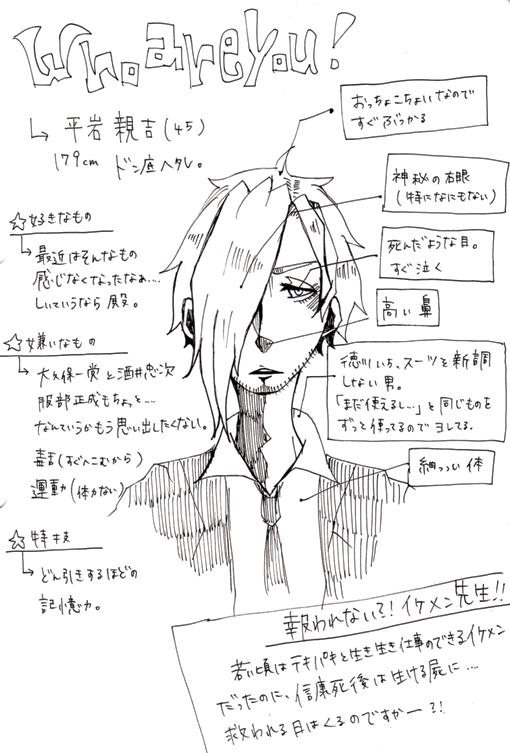 Who are you!
平岩 親吉(45)
179cm ドン底ヘタレ。
☆好きなもの
最近はそんなもの
感じなくなったなぁ…
しいていうなら殿。
☆嫌いなもの
大久保一党と酒井忠次
服部正成もちょと…
なんていうかもう思い出したくない。
毒舌(すぐへこむから)
運動(体力ない)
☆特技
どん引きするほどの
記憶力。
おっちょこちょいなので
すぐぶつかる
神秘の右眼
(特になにもない)
死んだような目。
すぐ泣く
高い鼻
徳川いち、スーツを新調
しない男。
「まだ使えるし…」と同じものを
ずっと使ってるのでヨレてる。
細っつい体
報われない?!イケメン先生!!
若い頃はテキパキと生き生き仕事のできるイケメン
だったのに、信康死後は生ける屍に…
救われる日はくるのですかー?!